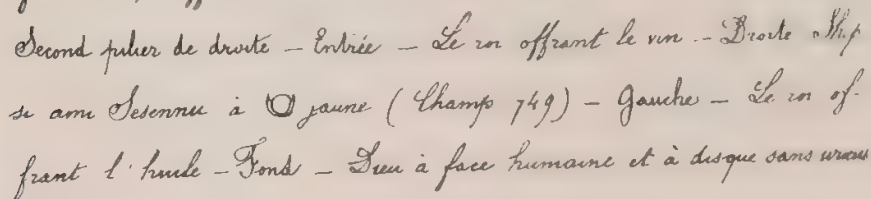 Second pilier de droite – Entrée – Le roi offrant le vin – Droite Shep
si ami Sesennu à jaune (Champ 749) – Gauche – Le roi of-
frant l'huile – Fond – Dieu à face humaine et à disque sans uraeus